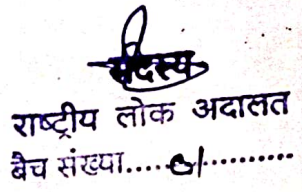 सदस्य
राष्ट्रीय लोक अदालत
बैच संख्या...............